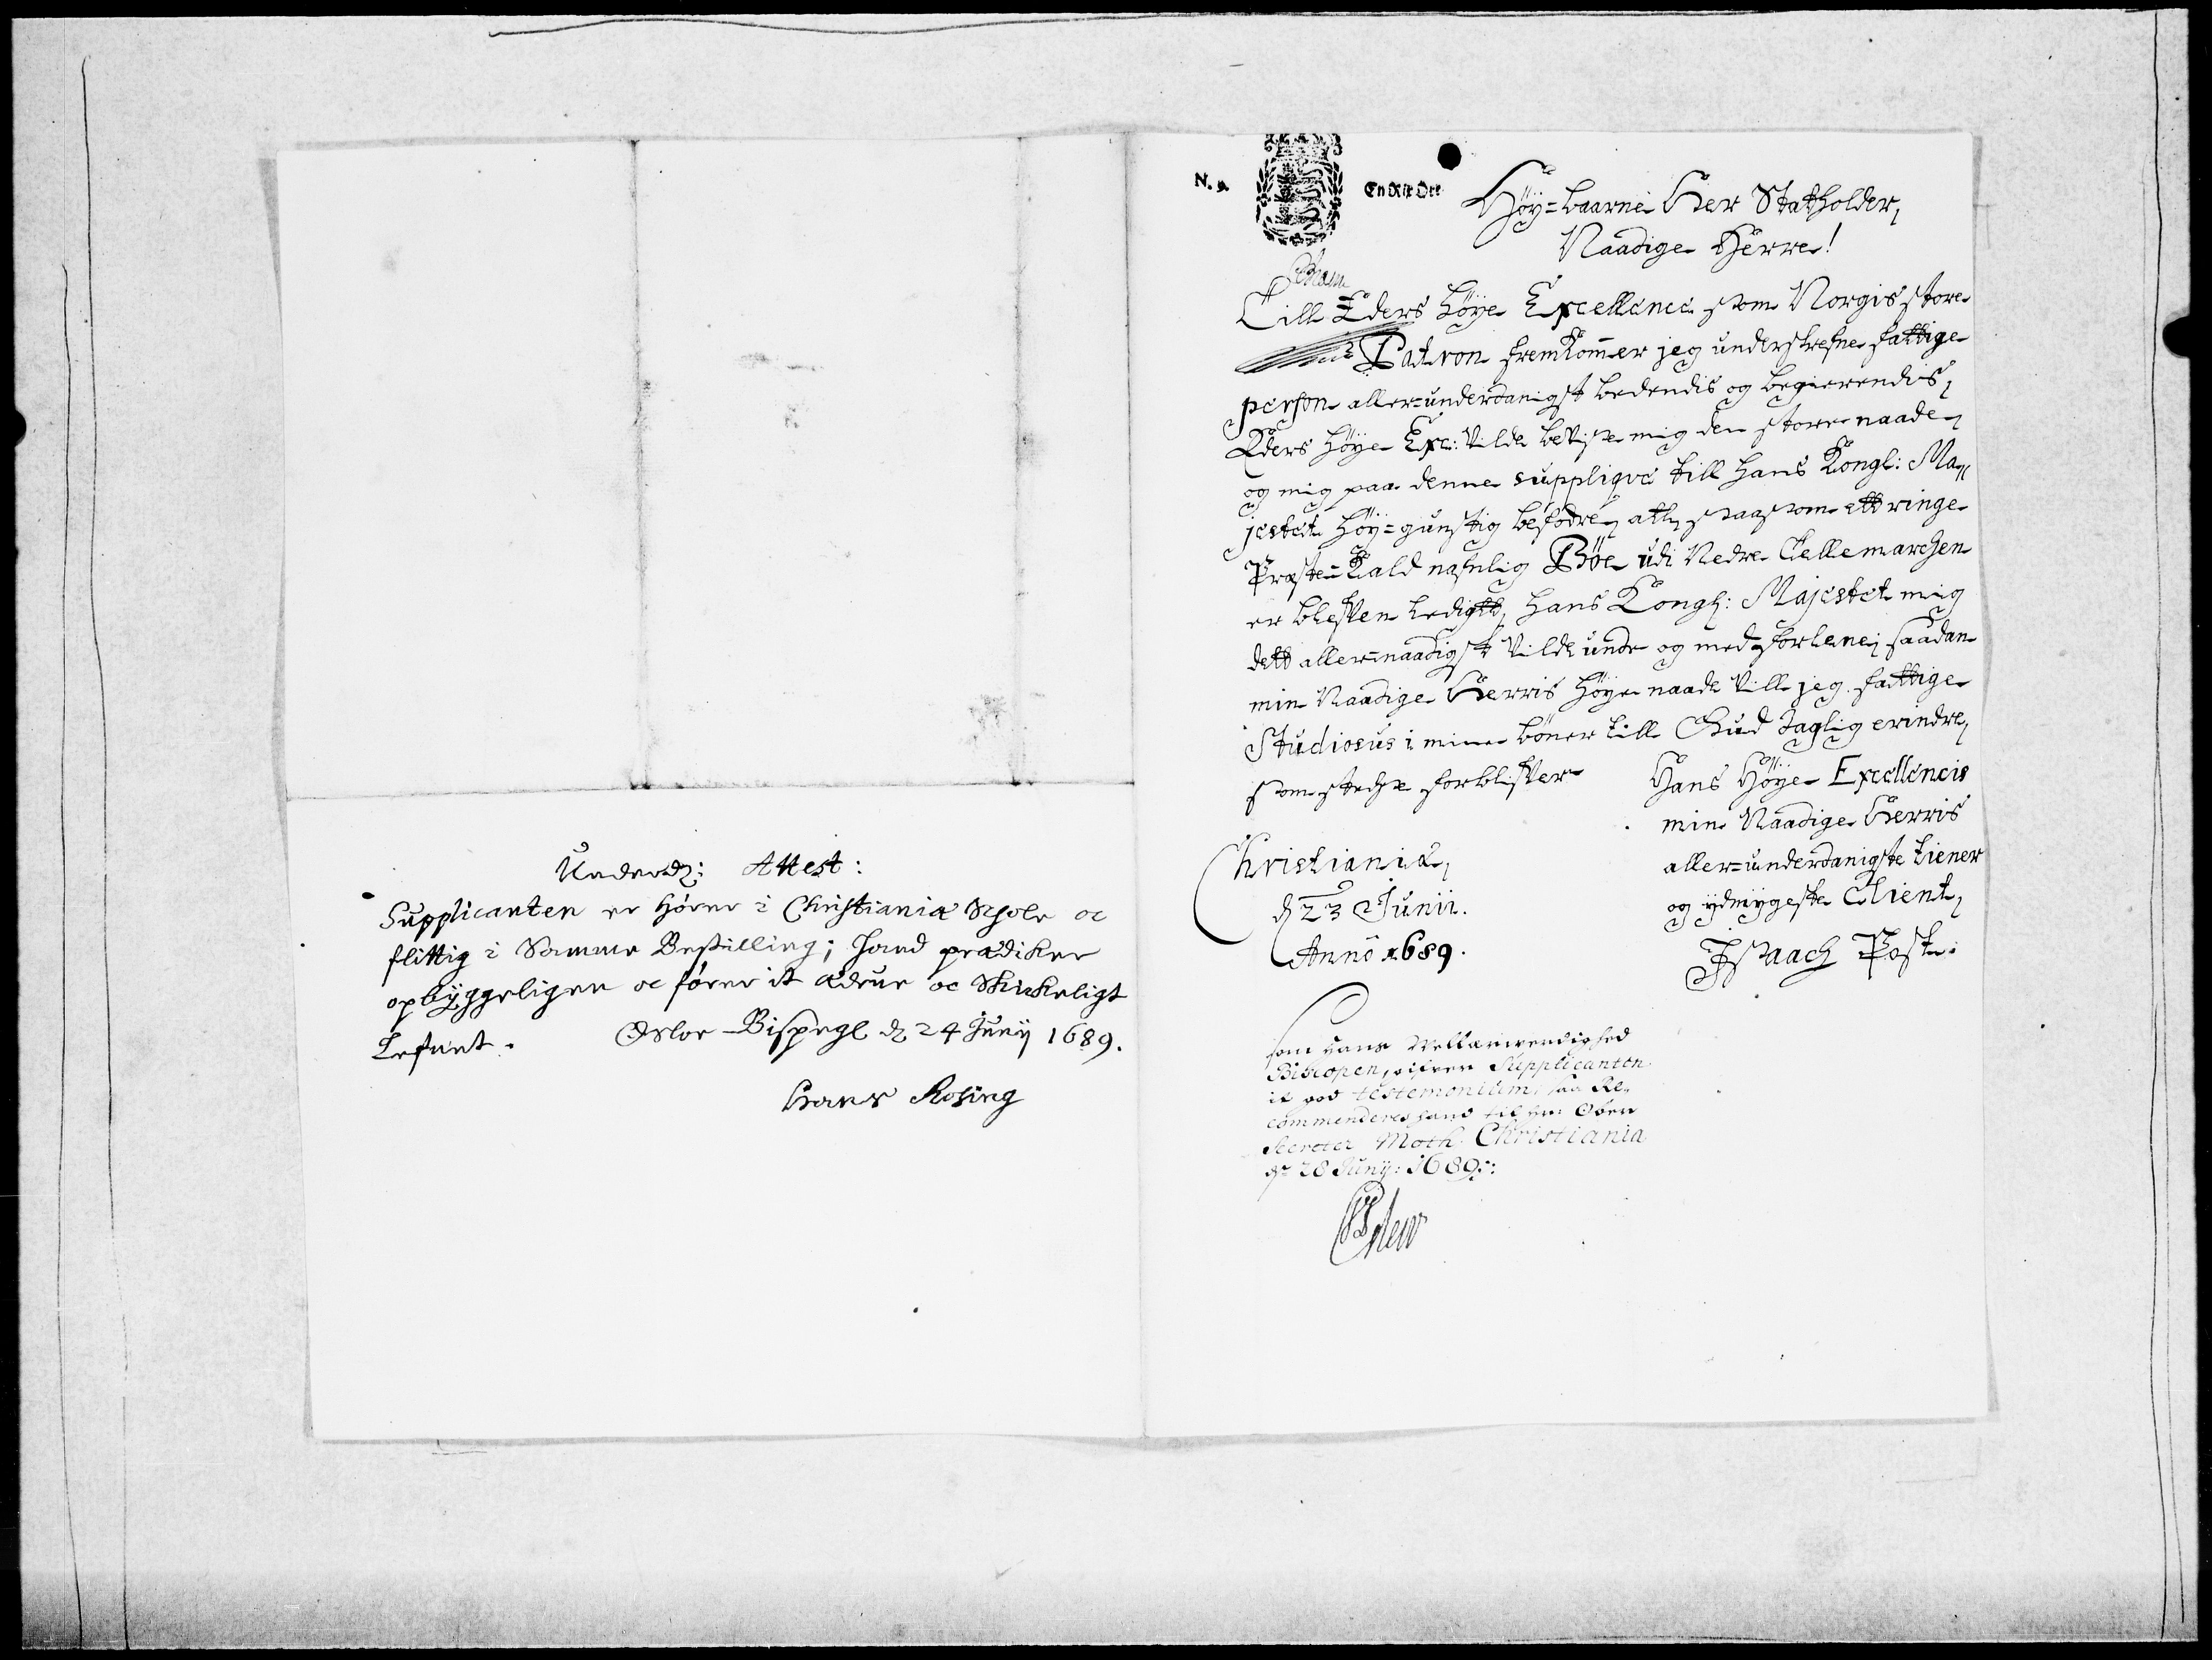 Underd: Attest:
Supplicanten er Hörer i Christianiæ Schole oc
flittig i Samme Bestilling; hand prædiker
opbyggeligen oc fører it ædrue oc Skickeligt
Lefnet. Osloe-Bispegl d 24 Junij 1689.
Hans Rosing
N. 9.
En Rix Ort
Höy=baarne Her Statholder,
Naadige Herre!
Till Eders höye Excellence som Norgis store
Patron fremkommer jeg underskrefne fattige
person aller=underdanigst bedendis og begierendis,
Eders höye Exc: vilde beviise mig den store naade,
og mig paa denne suppliqve till hans Kongl: Ma=
jestet höy=gunstig befodre, att, saasom ett ringe
Præste=Kald nafnlig Böe udi Nedre Tellemarchen
er blefven ledigtt, hans Kongl: Majestet mig
dett aller=naadigst vilde unde og med forlene, saadan
min Naadige Herris höye naade vill jeg fattige
Studiosus i mine böner till Gud daglig erindre,
som stedse forblifver
Hans Höye Excellencis
min Naadige Herris
aller=underdanigste tiener
og ydmygeste Client,
Isaach Post.
Christianiæ,
d 23 Junii.
Anno 1689.
Som hans Welærverdighed
Biscopen, gifver Supplicanten
it god testemonium, saa Re-
commenderes hand til Hr: Ober
Secreter Moth. Christiania
dn 28 Junij: 1689: